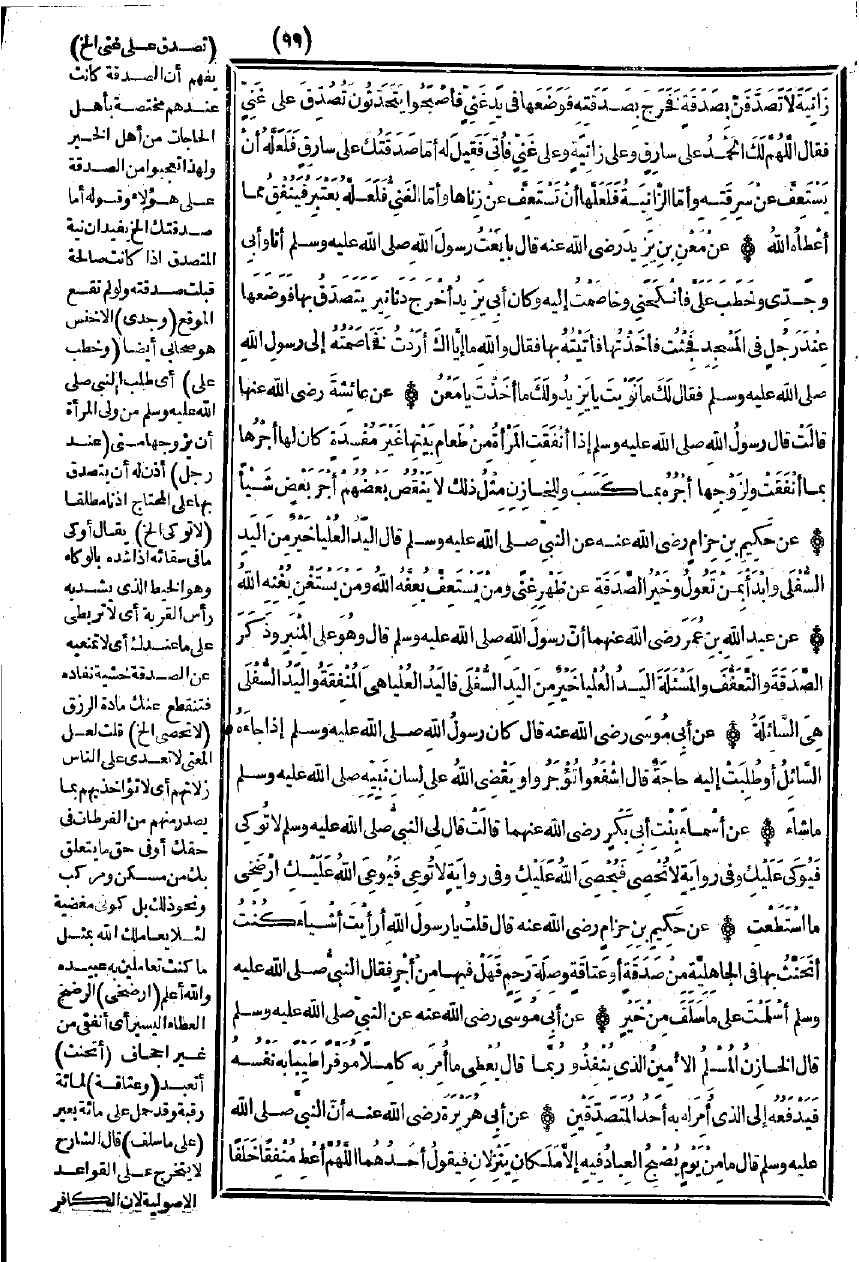 (٩٩)
زَانِيَةٍ لَأَتَصَدَّقَنَّ بِصَدَقَةٍ فَخَرَجَ بِصَدَقَتِهِ فَوَضَعَهَا فِي يَدِ غَنِيٍّ فَأَصْبَحُوا يَتَحَدَّثُونَ تُصُدِّقَ عَلَى غَنِيٍّ
فقال اللَّهُمَّ لَكَ الْحَمْدُ على سارِقٍ وعلى زانِيَةٍ وعلى غَنِيٍّ فَأُتِيَ فَقِيلَ له أمّا صَدَقَتُكَ على سارِقٍ فَلَعَلَّهُ أنْ
يَسْتَعِفَّ عنْ سَرِقَتِهِ وأمّا الزّانِيَةُ فَلَعَلَّها أنْ تَسْتَعِفَّ عنْ زِناها وأمّا الغَنِيُّ فَلَعَلَّهُ يَعْتَبِرُ فَيُنْفِقُ مما
أعْطاهُ اللهُ ۞ عنْ مَعْنِ بنِ يَزِيدَ رضى الله عنه قال بايَعْتُ رسولَ اللهِ صلى الله عليه وسلم أنا وأبى
وجَدِّى وخَطَبَ عَلَيَّ فَأَنْكَحَنِى وخاصَمْتُ إليه وكان أبى يَزِيدُ أخْرَجَ دَنانِيرَ يَتَصَدَّقُ بها فَوَضَعَها
عِنْدَ رَجُلٍ فى المَسْجِدِ فَجِئْتُ فَأَخَذْتُها فَأَتَيْتُهُ بها فقال واللهِ ما إيّاكَ أرَدْتُ فَخاصَمْتُهُ إلى رسولِ اللهِ
صلى الله عليه وسلم فقال لَكَ ما نَوَيْتَ يا يَزِيدُ ولَكَ ما أخَذْتَ يا مَعْنُ ۞ عن عائِشَةَ رضى الله عنها
قالَتْ قال رسولُ اللهِ صلى الله عليه وسلم إذا أنْفَقَتِ المَرْأَةُ مِنْ طَعامِ بَيْتِها غَيْرَ مُفْسِدَةٍ كان لَها أجْرُها
بما أنْفَقَتْ ولِزَوْجِها أجْرُهُ بما كَسَبَ ولِلْخازِنِ مِثْلُ ذلك لا يَنْقُصُ بَعْضُهُمْ أجْرَ بَعْضٍ شَيْأً
۞ عن حَكِيمِ بنِ حِزامٍ رضى الله عنه عن النبىِّ صلى الله عليه وسلم قال اليَدُ العُلْيا خَيْرٌ مِنَ اليَدِ
السُّفْلَى وابْدَأْ بِمَنْ تَعُولُ وخَيْرُ الصَّدَقَةِ عن ظَهْرِ غِنًى ومَنْ يَسْتَعِفَّ يُعِفَّهُ اللهُ ومَنْ يَسْتَغْنِ يُغْنِهِ اللهُ
۞ عن عبد الله بنِ عُمَرَ رضى الله عنهما أنّ رسولَ اللهِ صلى الله عليه وسلم قال وهُوَ على المِنْبَرِ وذَكَرَ
الصَّدَقَةَ والتَّعَفُّفَ والمَسْئَلَةَ اليَدُ العُلْيا خَيْرٌ مِنَ اليَدِ السُّفْلَى فاليَدُ العُلْيا هِىَ المُنْفِقَةُ واليَدُ السُّفْلَى
هِىَ السّائِلَةُ ۞ عن أبى مُوسَى رضى الله عنه قال كان رسولُ اللهِ صلى الله عليه وسلم إذا جاءَهُ
السّائِلُ أو طُلِبَتْ إليه حاجَةٌ قال اشْفَعُوا تُؤْجَرُوا ويَقْضِى اللهُ على لِسانِ نَبِيِّهِ صلى الله عليه وسلم
ما شاءَ ۞ عن أسْماءَ بِنْتِ أبى بَكْرٍ رضى الله عنهما قالَتْ قال لِىَ النبىُّ صلى الله عليه وسلم لا تُوكِى
فَيُوكَى عَلَيْكِ وفى رِوايَةٍ لا تُحْصِى فَيُحْصِىَ اللهُ عَلَيْكِ وفى رِوايَةٍ لا تُوعِى فَيُوعِىَ اللهُ عَلَيْكِ ارْضَخِى
ما اسْتَطَعْتِ ۞ عن حَكِيمِ بنِ حِزامٍ رضى الله عنه قال قلتُ يا رسولَ اللهِ أرَأَيْتَ أشْياءَ كُنْتُ
أتَحَنَّثُ بها فى الجاهِلِيَّةِ مِنْ صَدَقَةٍ أو عَتاقَةٍ وصِلَةِ رَحِمٍ فَهَلْ فيها مِنْ أجْرٍ فقال النبىُّ صلى الله عليه
وسلم أسْلَمْتَ على ما سَلَفَ مِنْ خَيْرٍ ۞ عن أبى مُوسَى رضى الله عنه عن النبىِّ صلى الله عليه وسلم
قال الخازِنُ المُسْلِمُ الأمِينُ الذى يُنْفِذُ ورُبَّما قال يُعْطِى ما أُمِرَ بِهِ كامِلاً مُوَفَّراً طَيِّباً بِهِ نَفْسُهُ
فَيَدْفَعُهُ إلى الذى أُمِرَ لَهُ بِهِ أحَدُ المُتَصَدِّقَيْنِ ۞ عن أبى هُرَيْرَةَ رضى الله عنه أنّ النبىَّ صلى الله
عليه وسلم قال ما مِنْ يَوْمٍ يُصْبِحُ العِبادُ فيه إلاّ مَلَكانِ يَنْزِلانِ فيقولُ أحَدُهُما اللَّهُمَّ أعْطِ مُنْفِقاً خَلَفًا
(تصدق على غنى الخ)
يفهم أن الصدقة كانت
عندهم مختصة بأهل
الحاجات من أهل الخير
ولهذا تعجبوا من الصدقة
على هؤلاء وقوله أما
صدقتك الخ يفيد ان نية
المتصدق اذا كانت صالحة
قبلت صدقته ولو لم تقع
الموقع (وجدى) الاخنس
هو صحابى أيضا (وخطب
على) أى طلب النبى صلى
الله عليه وسلم من ولى المرأة
أن يزوجها منى (عند
رجل) أذن له أن يتصدق
بها على المحتاج اذنا مطلقا
(لا توكى الخ) يقال أوكى
ما فى سقائه اذا شده بالوكاء
وهو الخيط الذى يشد به
رأس القربة أى لا تربطى
على ما عندك أى لا تمنعيه
عن الصدقة خشية نفاده
فتنقطع عنك مادة الرزق
(لا تحصى الخ) قلت لعل
المعنى لا تعدى على الناس
زلاتهم أى لا تؤاخذيهم بما
يصدر منهم من الفرطات فى
حقك أو فى حق ما يتعلق
بك من مسكن ومركب
ونحو ذلك بل كونى مغضية
لئلا يعاملك الله بمثل
ما كنت تعاملين به عبيده
والله أعلم (ارضخى) الرضخ
العطاء اليسير أى أنفقى من
غير اجحاف (أتحنث)
أتعبد (وعتاقة) لمائة
رقبة وقد حمل على مائة بعير
(على ما سلف) قال الشارح
لا يتخرج على القواعد
الاصولية لان الكافر